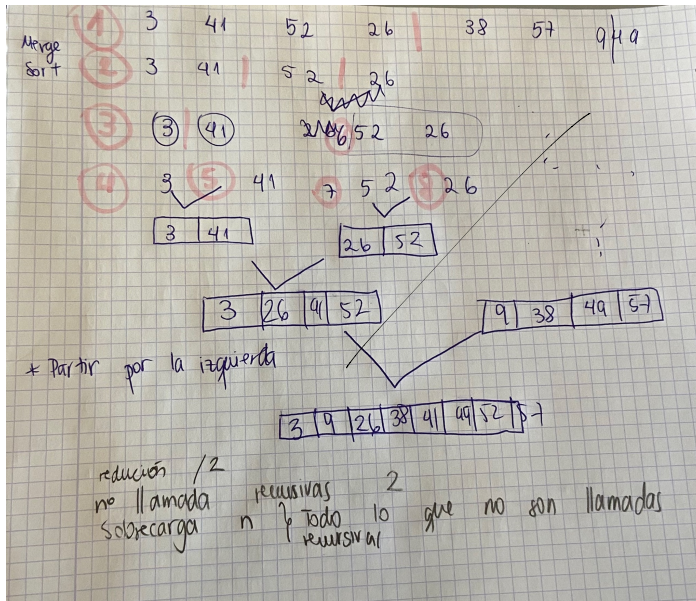 Merge
Sort
1 3 41 52 26 38 57 9 49
2 3 41 52 26
3 3 41 6 52 26
4 3 5 41 7 52 8 26
3 41 26 52
3 26 41 52 9 38 49 57
* Partir por la izquierda
3 9 26 38 41 49 52 57
redución /2
nº llamada recursivas 2
sobrecarga n } Todo lo que no son llamadas
recursiva